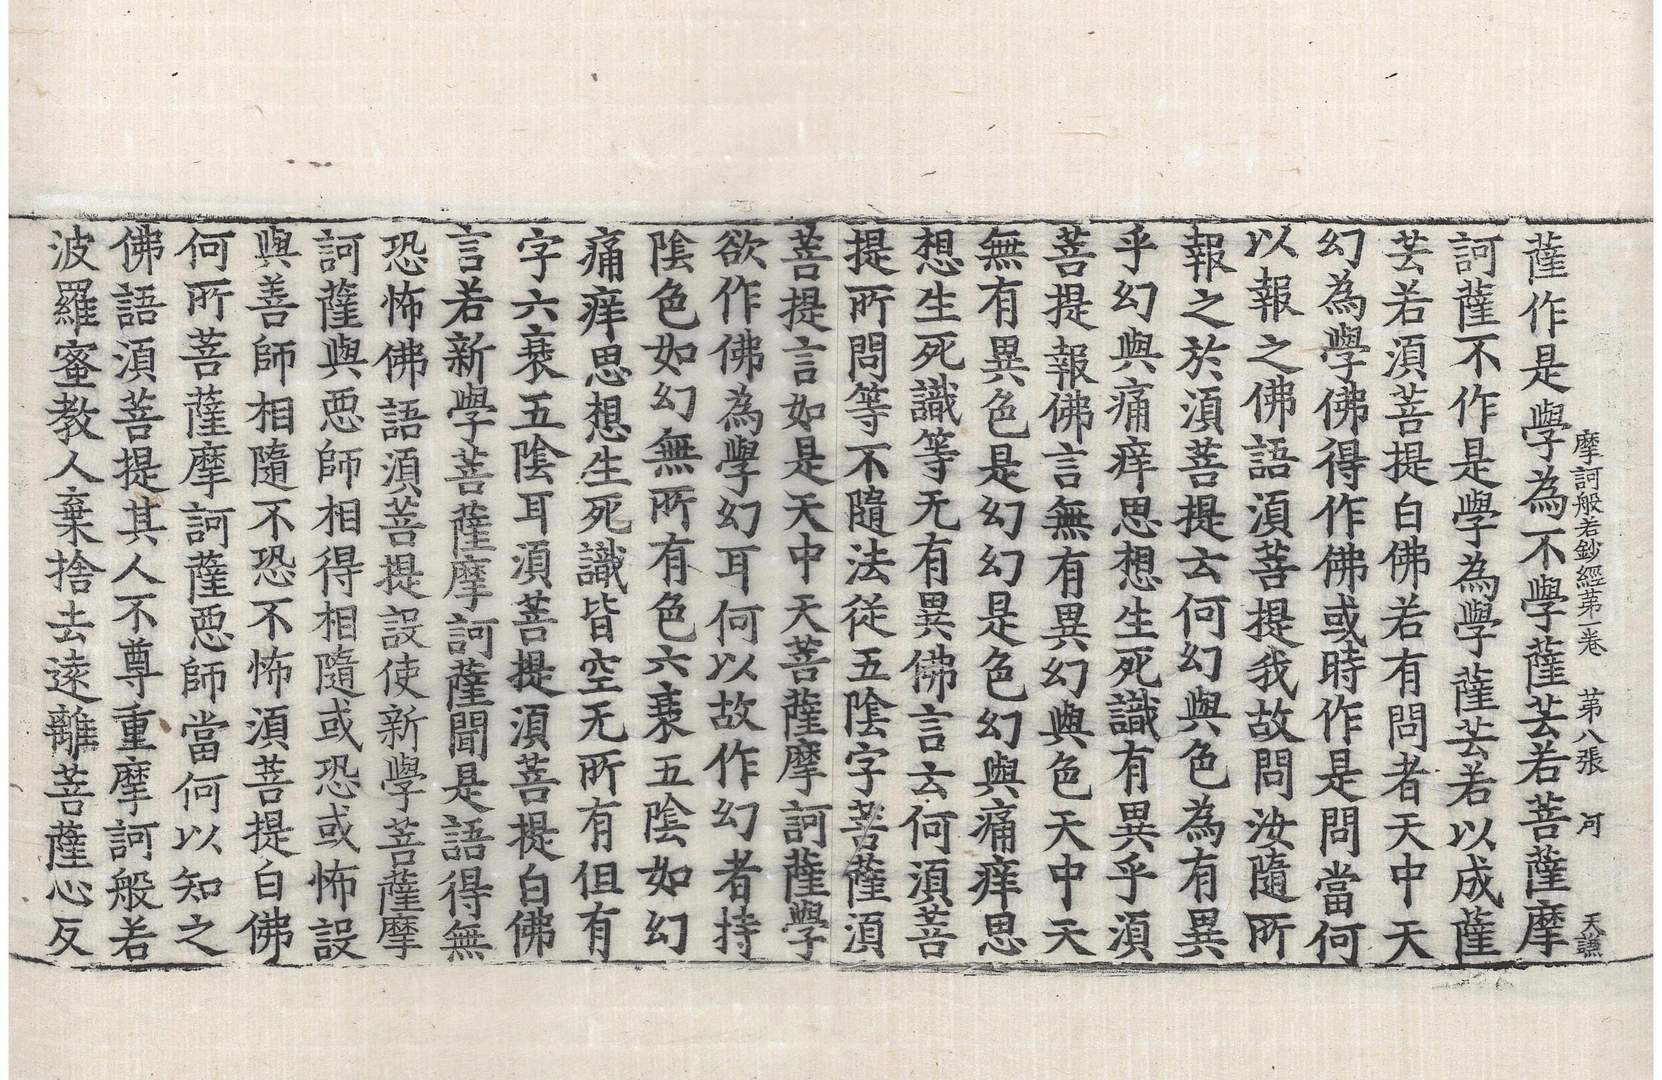 摩訶般若鈔經第一卷 第八張 河 天謙
薩作是學為不學薩芸若菩薩摩
訶薩不作是學為學薩芸若以成薩
芸若須菩提白佛若有問者天中天
幻為學佛得作佛或時作是問當何
以報之佛語須菩提我故問汝隨所
報之於須菩提云何幻與色為有異
乎幻與痛痒思想生死識有異乎須
菩提報佛言無有異幻與色天中天
無有異色是幻幻是色幻與痛痒思
想生死識等无有異佛言云何須菩
提所問等不隨法從五陰字菩薩須
菩提言如是天中天菩薩摩訶薩學
欲作佛為學幻耳何以故作幻者持
陰色如幻無所有色六衰五陰如幻
痛痒思想生死識皆空无所有但有
字六衰五陰耳須菩提須菩提白佛
言若新學菩薩摩訶薩聞是語得無
恐怖佛語須菩提設使新學菩薩摩
訶薩與惡師相得相隨或恐或怖設
與善師相隨不恐不怖須菩提白佛
何所菩薩摩訶薩惡師當何以知之
佛語須菩提其人不尊重摩訶般若
波羅蜜教人棄捨去遠離菩薩心反